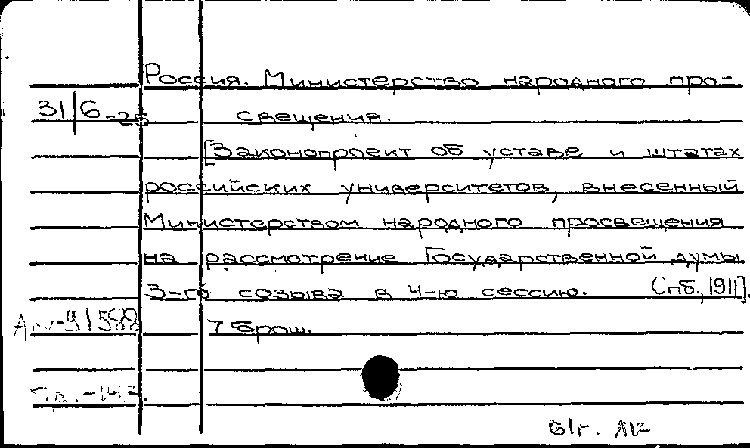 Россия. Министерство народного про-
31/6-25 свещения.
[Законопроект об уставе и штатах
российских университетов, внесенный
Министерством народного просвещения
на рассмотрение Государственной думы
3-го созыва в 4-ю сессию. Спб., 1911].
7 брош.
61г.